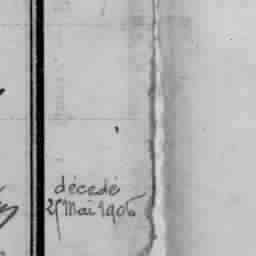 décedé
25 Mai 1906